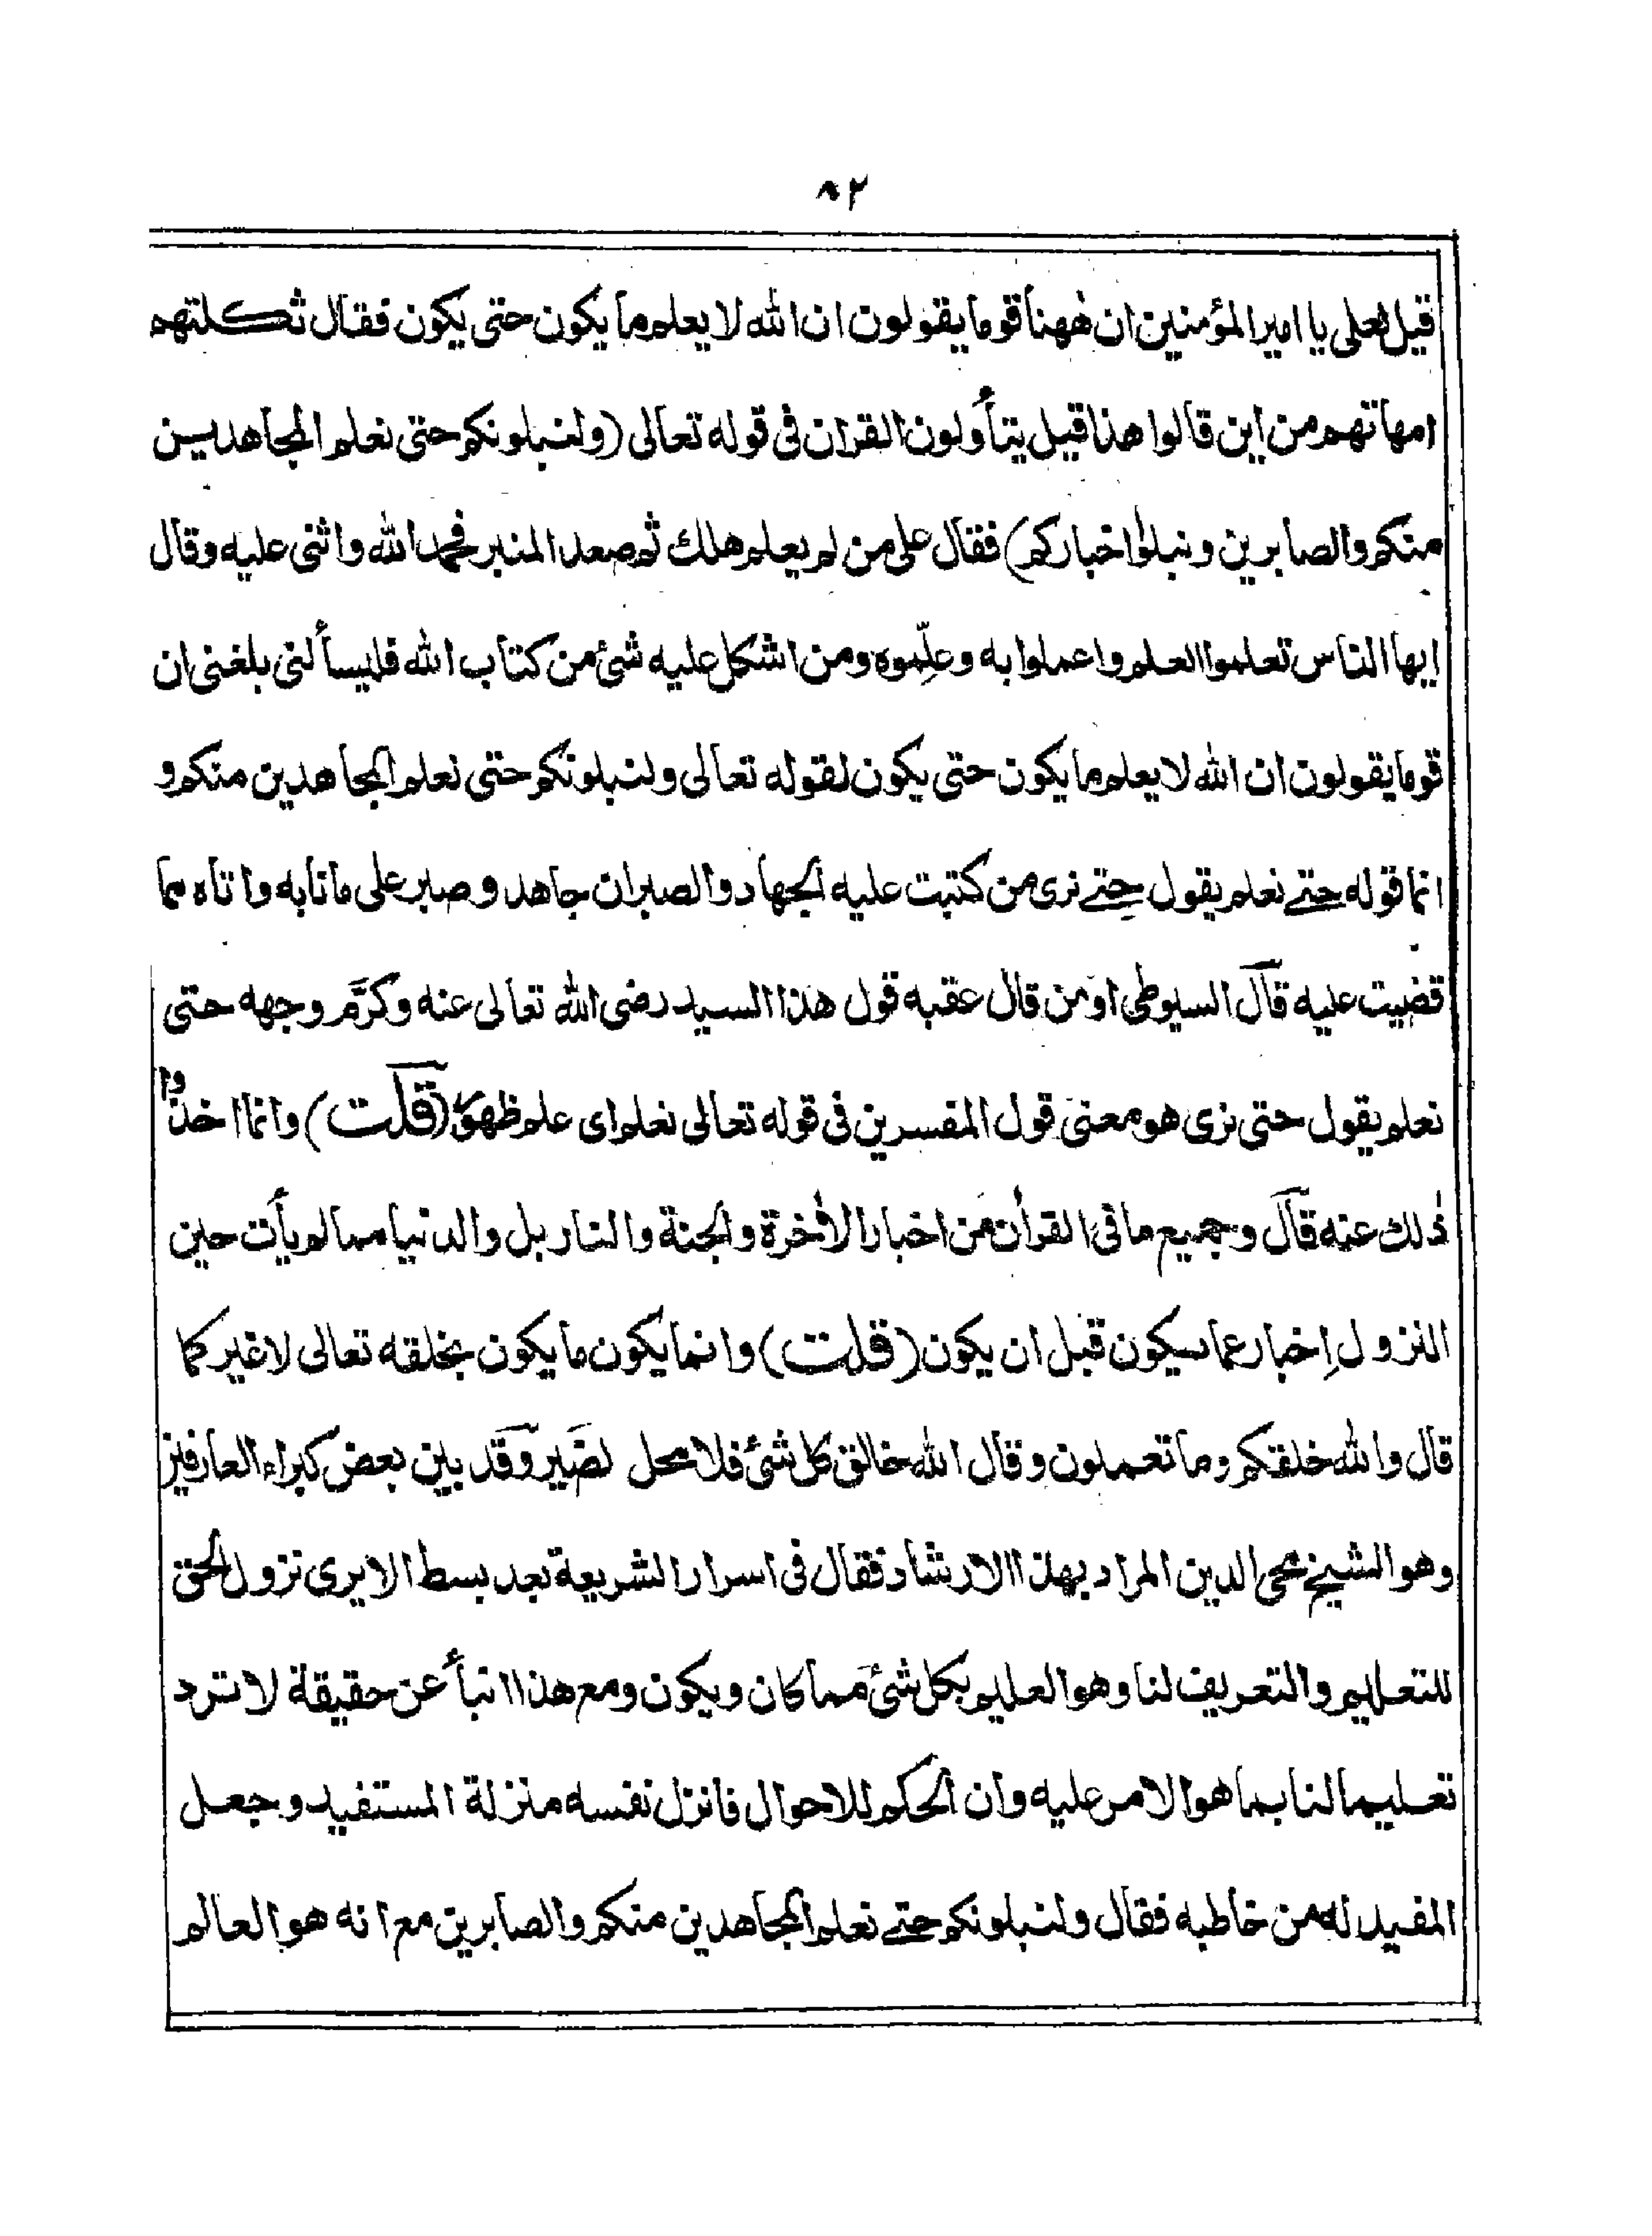 ٨٢
قيل لعلى يا امير المؤمنين ان ههنا قوما يقولون ان الله لا يعلم ما يكون حتى يكون فقال ثكلتهم
امهاتهم من اين قالوا هذا قيل يتأولون القران فى قوله تعالى (ولنبلونكم حتى نعلم المجاهدين
منكم والصابرين ونبلوا اخباركم) فقال على من لم يعلم هلك ثم صعد المنبر فحمد الله واثنى عليه وقال
ايها الناس تعلموا العلم واعملوا به وعلِّموه ومن اشكل عليه شئ من كتاب الله فليسألنى بلغنى ان
قوما يقولون ان الله لا يعلم ما يكون حتى يكون لقوله تعالى ولنبلونكم حتى نعلم المجاهدين منكم و
انما قوله حتے نعلم يقول حتے نرى من كتبت عليه الجهاد والصبر ان جاهد وصبر على ما نابه واتاه مما
قضيت عليه قال السيوطى او من قال عقبه قول هذا السيد رضى الله تعالى عنه وكرّم وجهه حتى
نعلم يقول حتى نرى هو معنى قول المفسرين فى قوله تعالى نعلم اى علم ظهور (قلت) وانما اخذوا
ذلك عنه قال وجميع ما فى القرأن من اخبار الأخرة والجنة والنار بل والدنيا مما لم يأت حين
النزول اِخبار عما سيكون قبل ان يكون (قلت) وانما يكون ما يكون بخلقه تعالى لا غير كما
قال والله خلقكم وما تعملون وقال الله خالق كل شئ فلا محل لضير وقد بين بعض كبراء العارفين
وهو الشيخ محى الدين المراد بهذا الارشاد فقال فى اسرار الشريعة بعد بسط الا يرى نزول الحق
للتعليم والتعريف لنا وهو العليم بكل شئ مما كان ويكون ومع هذا انبأ عن حقيقة لا ترد
تعليما لنا بما هو الامر عليه وان الحكم للاحوال فانزل نفسه منزلة المستفيد وجعل
المفيد له من خاطبه فقال ولنبلونكم حتے نعلم المجاهدين منكم والصابرين مع انه هو العالم